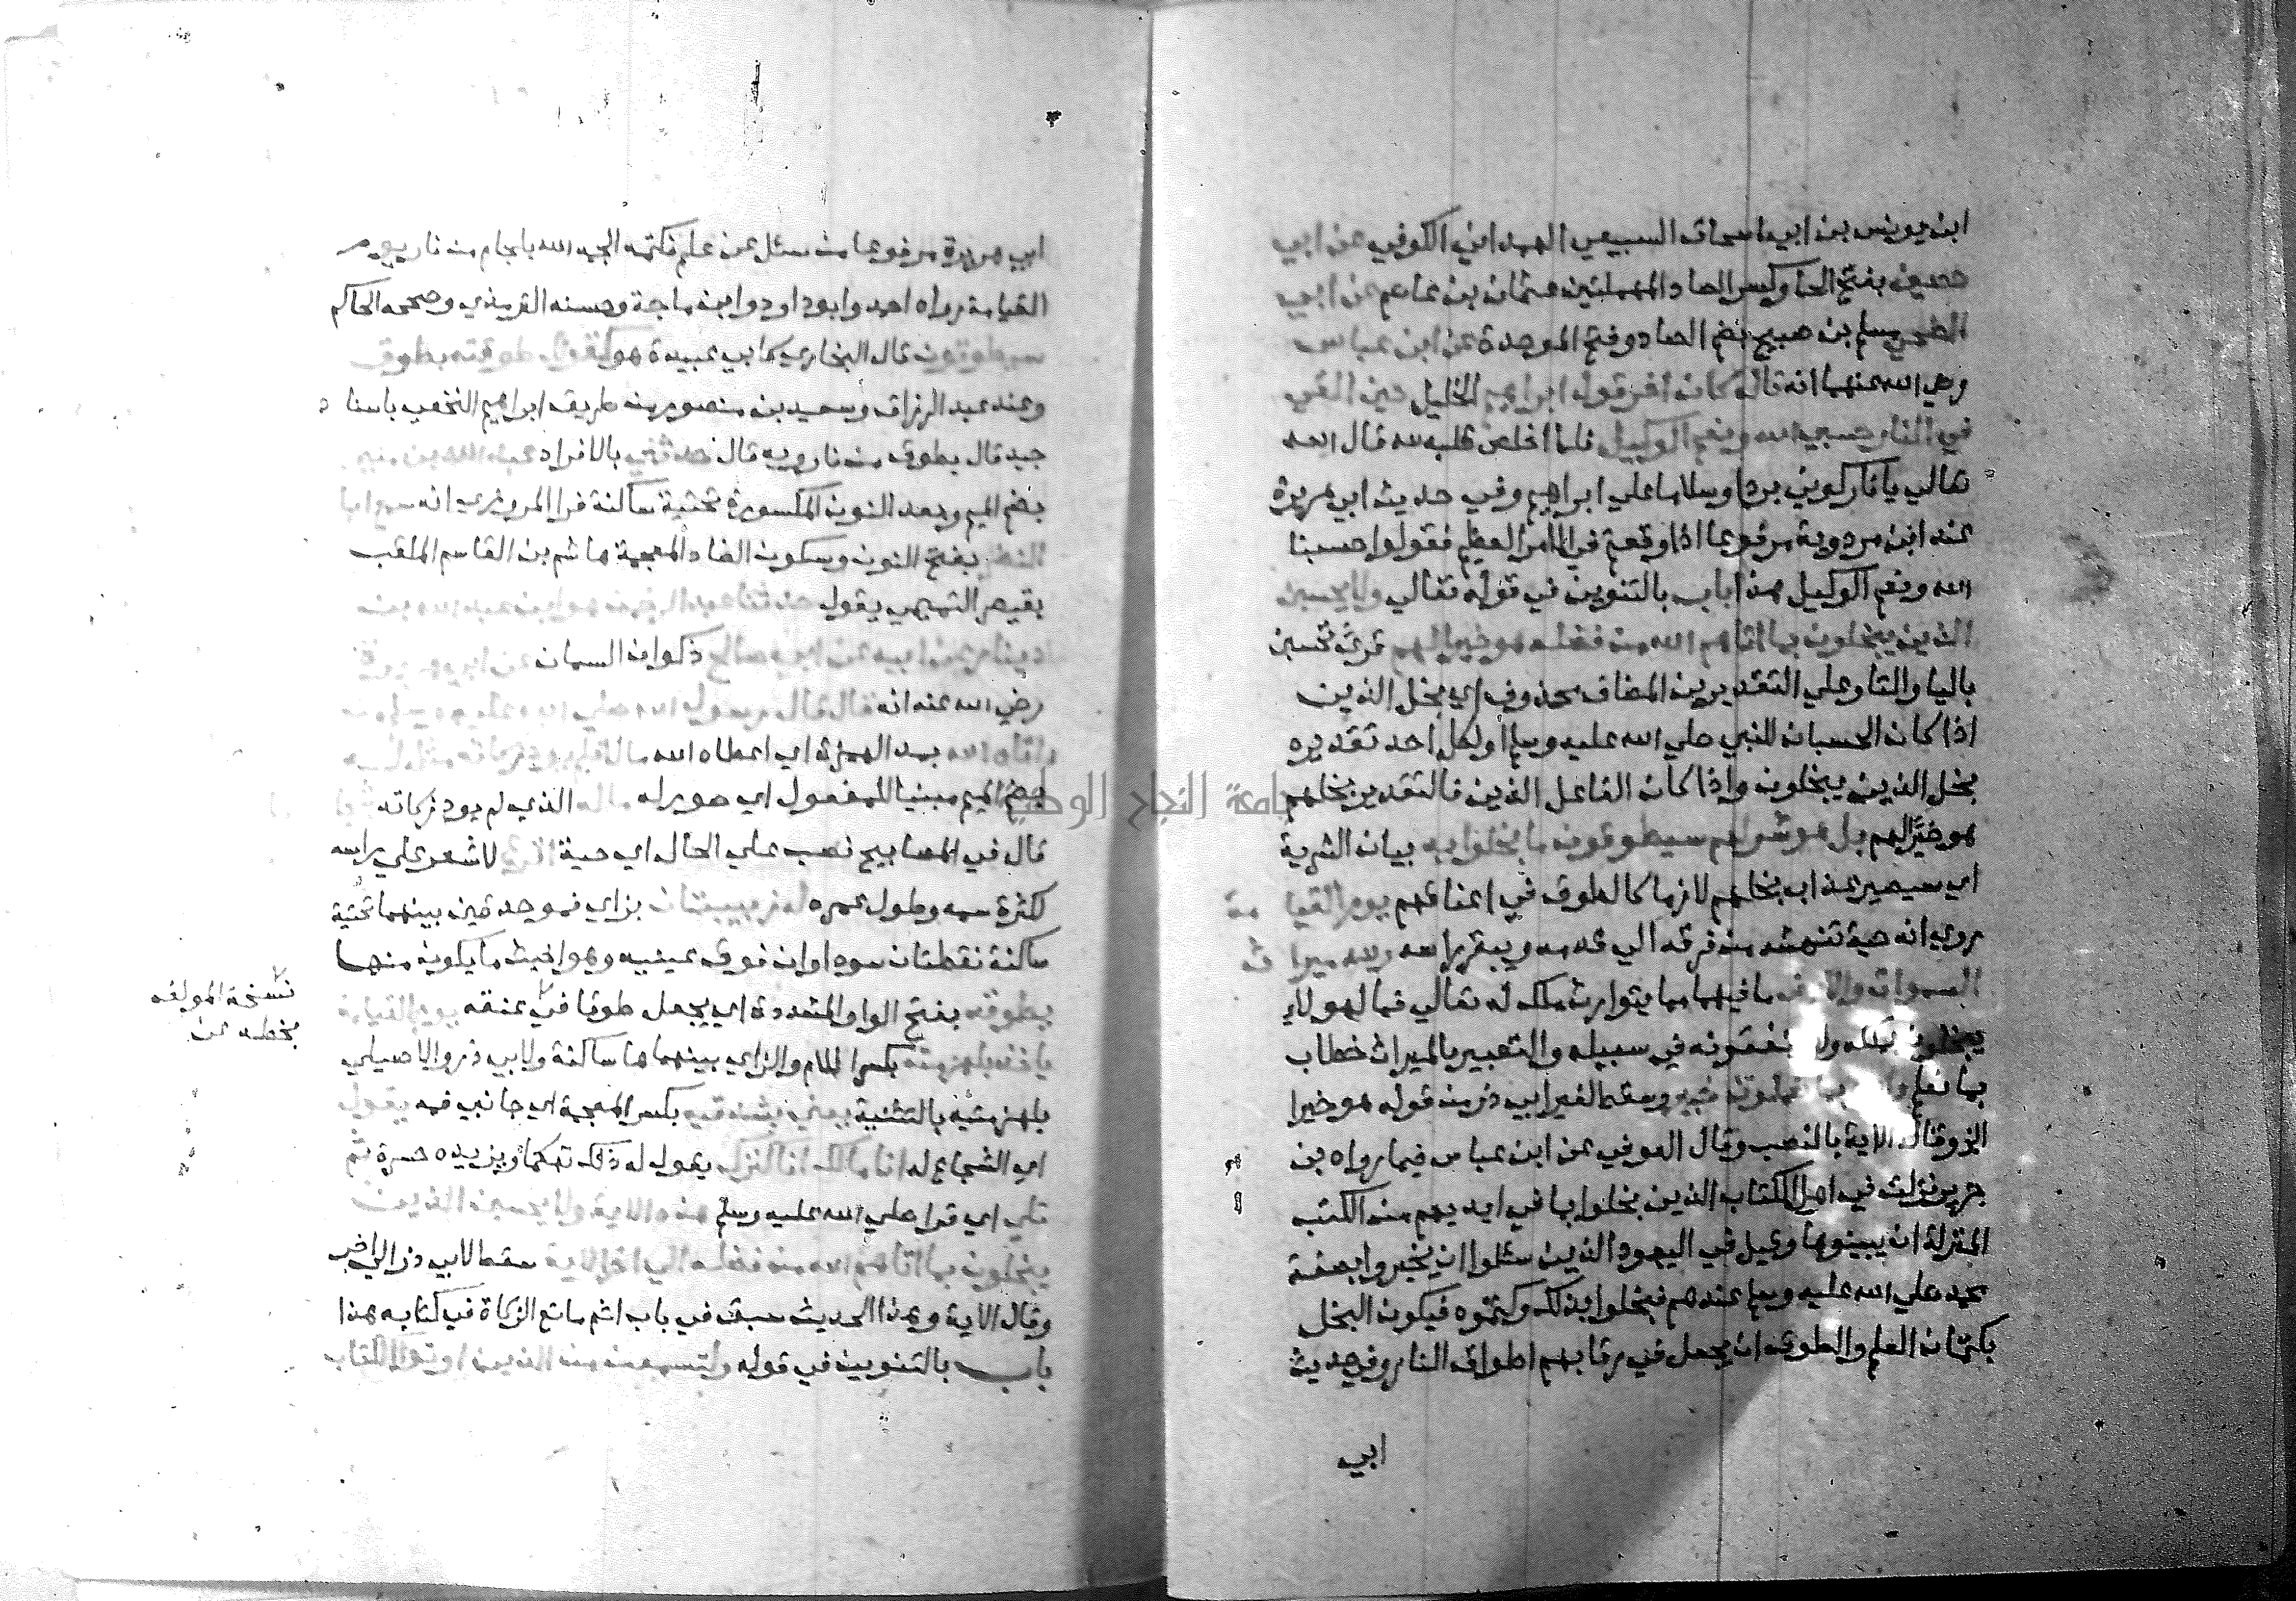 ابن يونس بن ابي اسحاق السبيعي الهمداني الكوفي عن ابي
حصين بفتح الحا وكسر الصاد المهملتين عثمان بن عاصم عن ابي
الضحي مسلم بن صبيح بضم الصاد وفتح الموحدة عن ابن عباس
رضي الله عنهما انه قال كان اخر قول ابراهيم الخليل حين القي
في النار حسبي الله ونعم الوكيل فلما اخلص قلبه لله قال الله
تعالي يا نار كوني بردا وسلاما علي ابراهيم وفي حديث ابي هريرة
عند ابن مردوية مرفوعا اذا وقعتم في الامر العظيم فقولوا حسبنا
الله ونعم الوكيل هذا باب بالتنوين في قوله تعالي ولا يحسبن
الذين يبخلون بما اتاهم الله من فضله هو خيرا لهم قري تحسبن
باليا والتا وعلي التقديرين المضاف محذوف اي بخل الذين
اذا كان الحسبان للنبي صلي الله عليه وسلم او لكل احد تقديره
بخل الذين يبخلون واذا كان الفاعل الذين فالتقدير بخلهم
هو خيرا لهم بل هو شر لهم سيطوقون ما بخلوا به بيان الشرية
اي سيصير عذاب بخلهم لازما كالطوق في اعناقهم يوم القيامة
روي انه حية تنهشه من فرقه الي قدمه وينقر راسه ولله ميراث
السموات والارض ما فيهما مما يتوارث ملك له تعالي فما لهولاء
يبخلون بملكه ولا ينفقونه في سبيله والتعبير بالميراث خطاب
بما نعلم والله بما تعملون خبير وسقط لغير ابي ذر من قوله هو خيرا
الخ وقال الاية بالنصب وقال العوفي عن ابن عباس فيما رواه بن
جرير نزلت في اهل الكتاب الذين بخلوا بما في ايديهم من الكتب
المنزلة ان يبينوها وقيل في اليهود الذين سئلوا ان يخبروا بصفة
محمد صلي الله عليه وسلم عندهم فبخلوا بذلك وكتموه فيكون البخل
بكتمان العلم والطوق ان يجعل في رقابهم اطواق النار وفي حديث
ابي
ابي هريرة مرفوعا من سئل عن علم فكتمه الجمه الله بلجام من نار يوم
القيامة رواه احمد وابو داود وابن ماجة وحسنه الترمذي وصححه الحاكم
سيطوقون قال البخاري كابي عبيدة هو كقولك طوقته بطوق
وعند عبد الرزاق وسعيد بن منصور من طريق ابراهيم النخعي باسناد
جيد قال بطوق من نار وبه قال حدثني بالافراد عبد الله بن منير
بضم الميم وبعد النون المكسورة تحتية ساكنة فرا المروزي انه سمع ابا
النضر بفتح النون وسكون الضاد المعجمة هاشم بن القاسم الملقب
بقيصر التميمي يقول حدثنا عبد الرحمن هو ابن عبد الله بن
دينار عن ابيه عن ابي صالح ذكوان السمان عن ابي هريرة
رضي الله عنه انه قال قال رسول الله صلي الله عليه وسلم من
اتاه الله بمد الهمزة اي اعطاه الله مالا فلم يود زكاته مثل له
بضم الميم مبنيا للمفعول اي صور له ماله الذي لم يود زكاته
قال في المصابيح نصب علي الحال اي حية اقرع لا شعر علي راسه
لكثرة سمه وطول عمره له زبيبتان بزاي فموحدتين بينهما تحتية
ساكنة نقطتان سوداوان فوق عينيه وهو اخبث ما يكون منها
يطوقه بفتح الواو المشددة اي يجعل طوقا في عنقه يوم القيامة
ياخذ بلهزمته بكسر اللام والزاي بينهما ها ساكنة ولابي ذر والاصيلي
بلهزمتيه بالتثنية يعني بشدقيه بكسر المعجمة اي جانبي فمه يقول
اي الشجاع له انا مالك انا كنزك يقول له ذلك تهكما ويزيده حسرة ثم
تلي اي قرا صلي الله عليه وسلم هذه الاية ولا يحسبن الذين
يبخلون بما اتاهم الله من فضله الي اخر الاية سقط لابي ذر الي اخر
وقال الاية وهذا الحديث سبق في باب اثم مانع الزكاة في كتابه هذا
باب بالتنوين في قوله ولتسمعن من الذين اوتوا الكتاب
نسخة المولف
بخطه عن
جامعة النجاح الوطنية